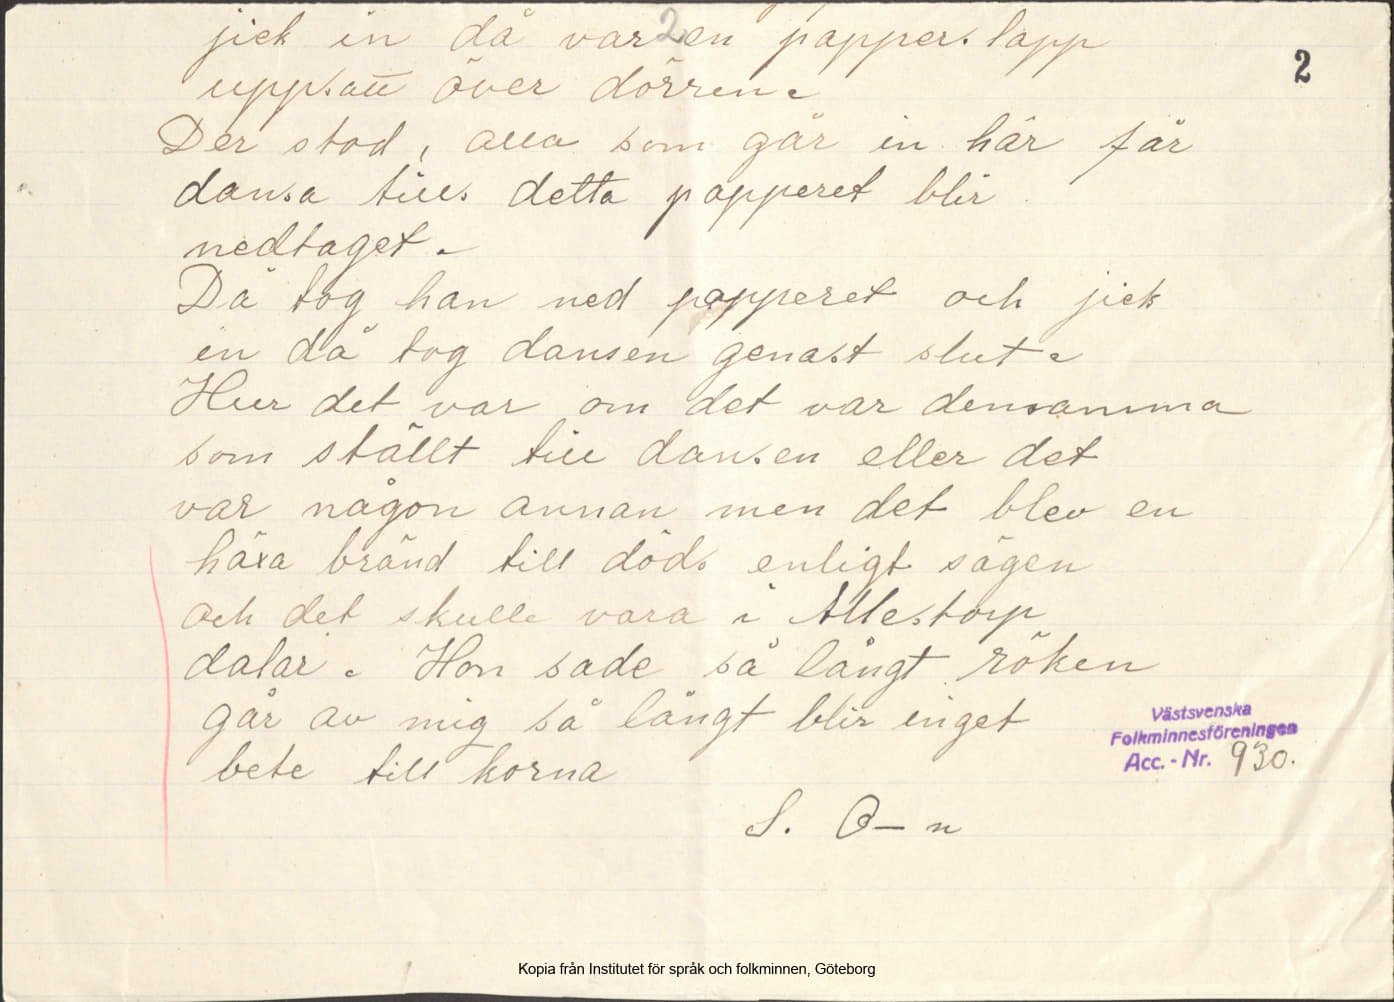 2
jick in då var en papperslapp
2
uppsatt över dörren.
Der stod, alla som går in här får
dansa tills detta papperet blir
nedtaget.
Då tog han ned papperet och jick
in då tog dansen genast slut.
Hur det var om det var densamma
som ställt till dansen eller det
var någon annan men det blev en
häxa bränd till döds enligt sägen
och det skulle vara i Allestorp
dalar. Hon sade så långt röken
går av mig så långt blir inget
bete till korna
Västsvenska
Folkminnesföreningen
Acc.-Nr. 930.
S. O—n
Kopia från Institutet för språk och folkminnen, Göteborg